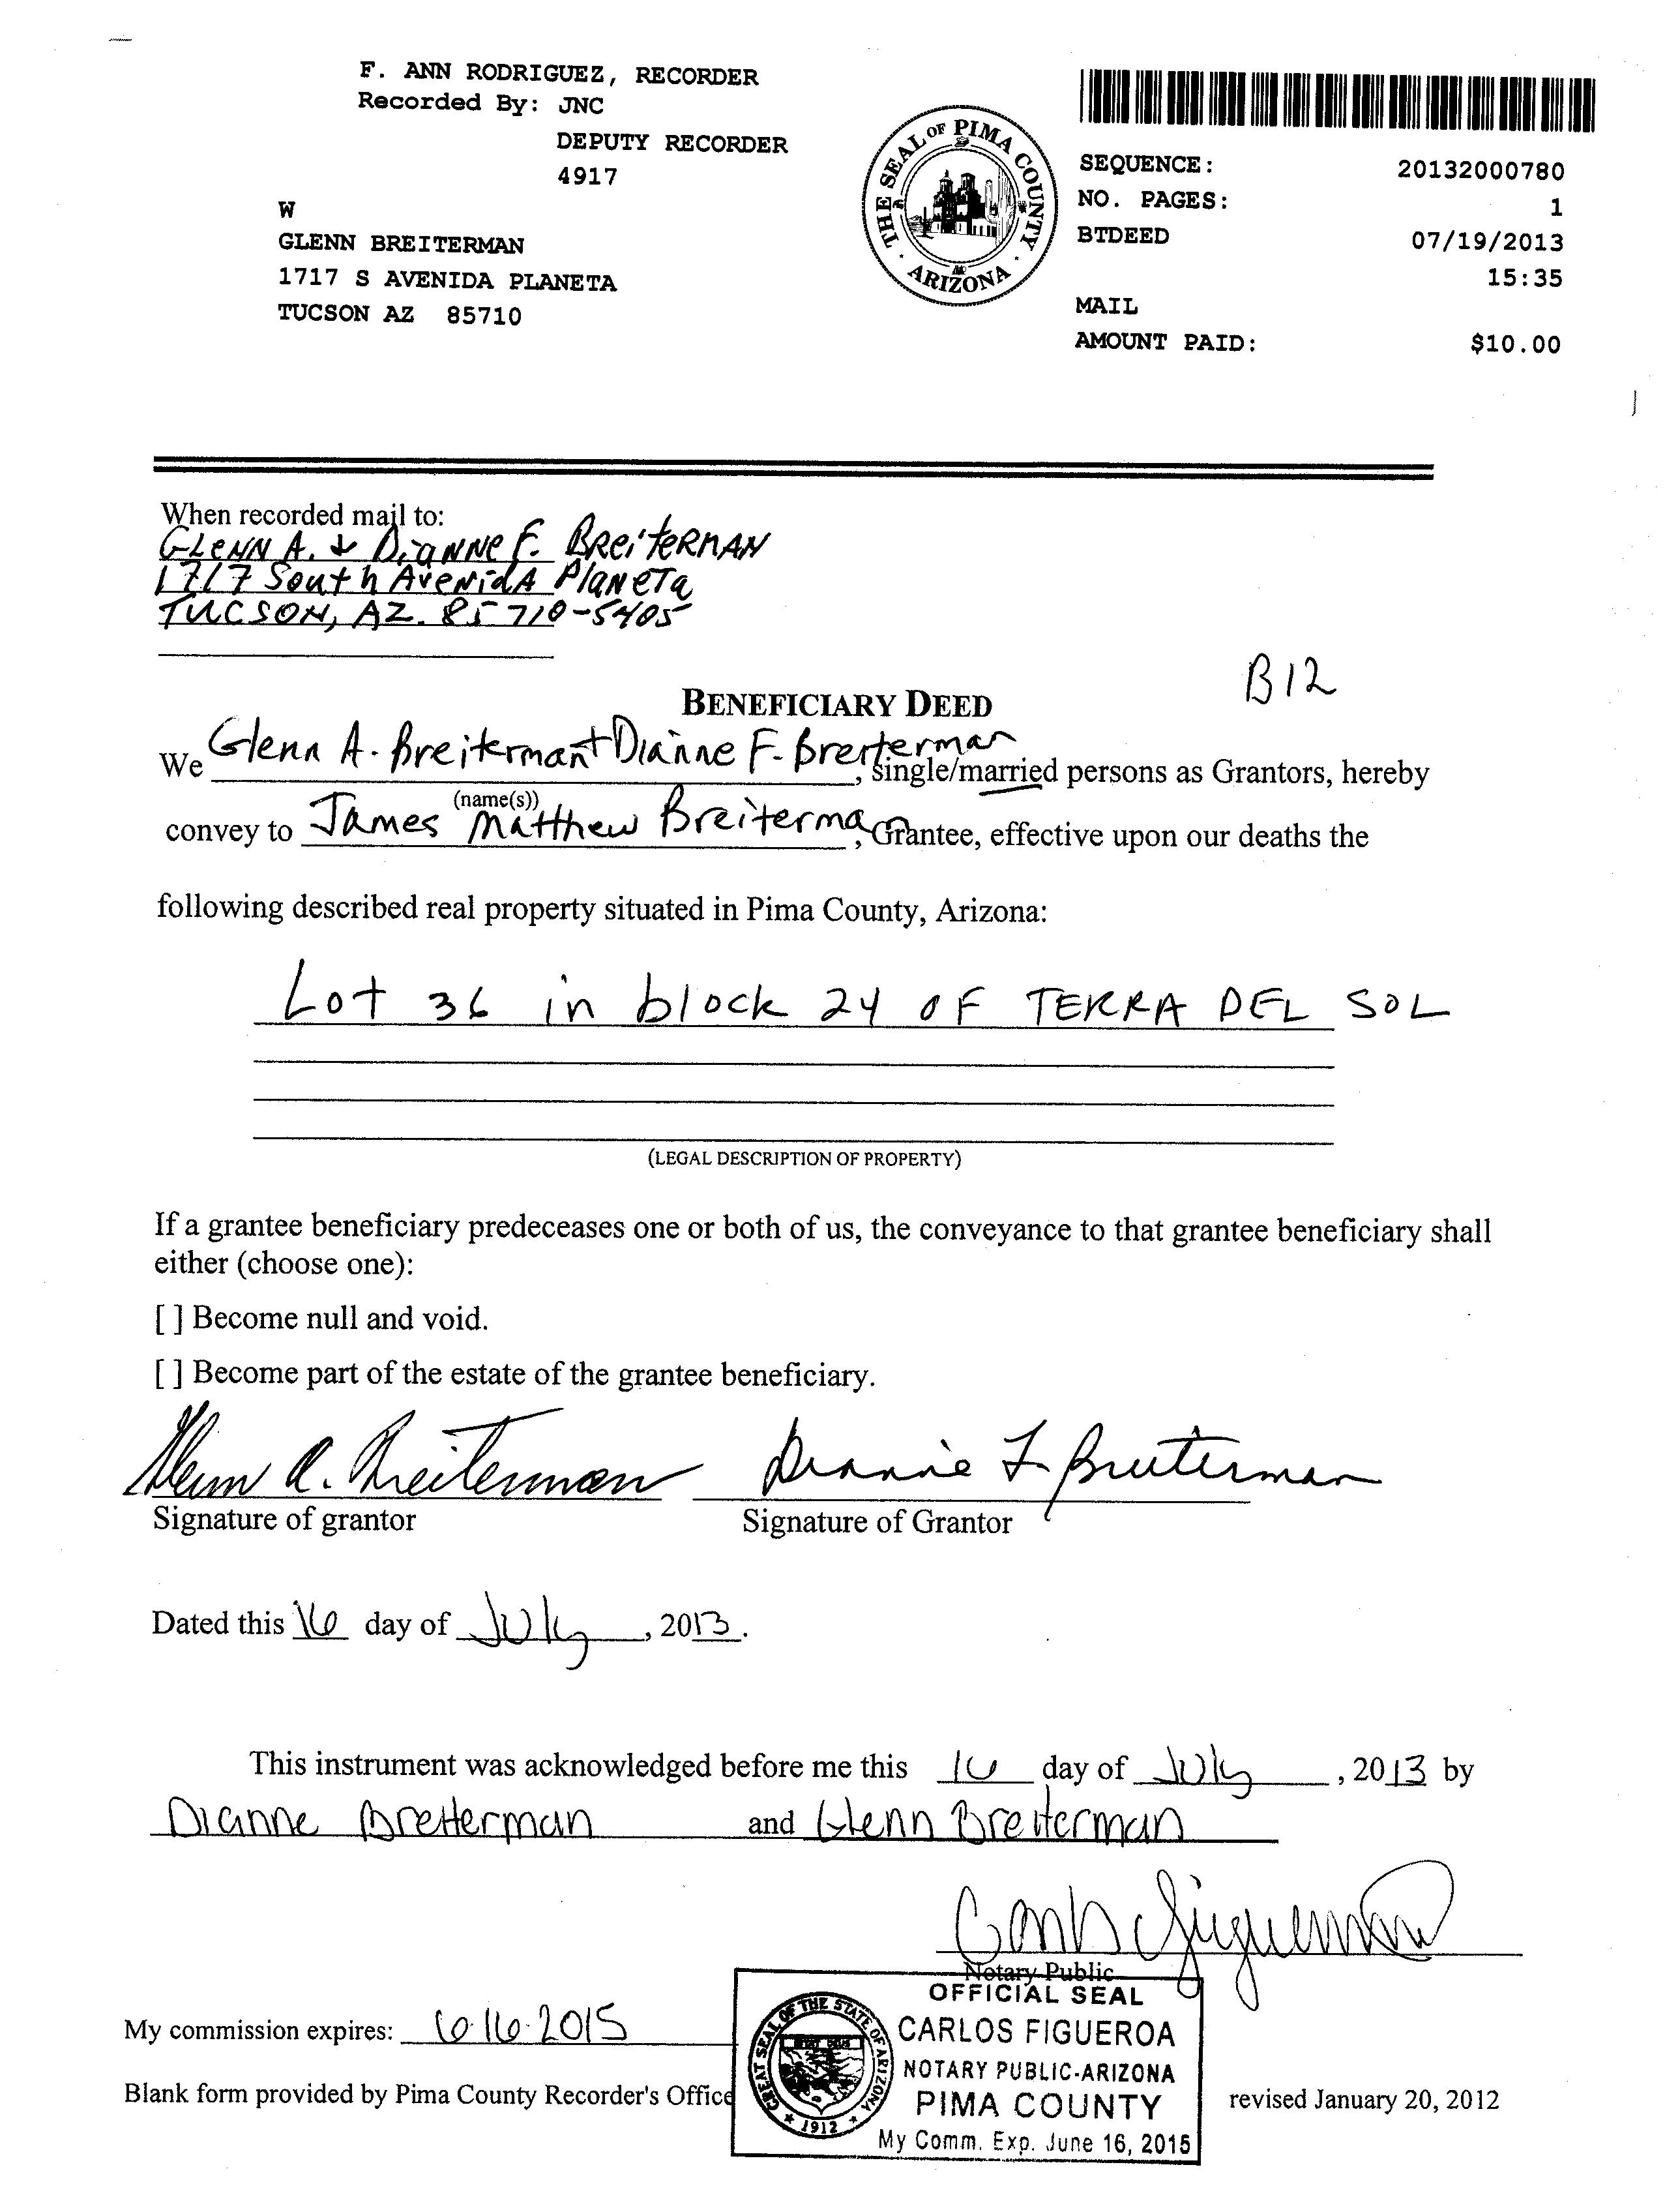 F. ANN RODRIGUEZ, RECORDER
Recorded By: JNC
DEPUTY RECORDER
4917
W
GLENN BREITERMAN
1717 S AVENIDA PLANETA
TUCSON AZ 85710
THE SEAL OF PIMA COUNTY · ARIZONA ·
SEQUENCE: 20132000780
NO. PAGES: 1
BTDEED 07/19/2013
15:35
MAIL
AMOUNT PAID: $10.00
When recorded mail to:
GLENN A. & DiANNE F. BREiTERMAN
1717 South AVENidA PlANETa
TUCSON, AZ. 85710-5405
B12
BENEFICIARY DEED
We Glenn A. Breiterman + Dianne F. Breiterman, single/married persons as Grantors, hereby
(name(s))
convey to James Matthew Breiterman, Grantee, effective upon our deaths the
following described real property situated in Pima County, Arizona:
Lot 36 in block 24 OF TERRA DEL SOL
(LEGAL DESCRIPTION OF PROPERTY)
If a grantee beneficiary predeceases one or both of us, the conveyance to that grantee beneficiary shall
either (choose one):
[ ] Become null and void.
[ ] Become part of the estate of the grantee beneficiary.
Glenn A. Breiterman Dianne F. Breiterman
Signature of grantor Signature of Grantor
Dated this 16 day of July, 2013.
This instrument was acknowledged before me this 16 day of July, 2013 by
Dianne Breiterman and Glenn Breiterman
Carlos Figueroa
Notary Public
OFFICIAL SEAL
CARLOS FIGUEROA
NOTARY PUBLIC-ARIZONA
PIMA COUNTY
My Comm. Exp. June 16, 2015
GREAT SEAL OF THE STATE OF ARIZONA
1912
My commission expires: 6.16.2015
Blank form provided by Pima County Recorder's Office
revised January 20, 2012